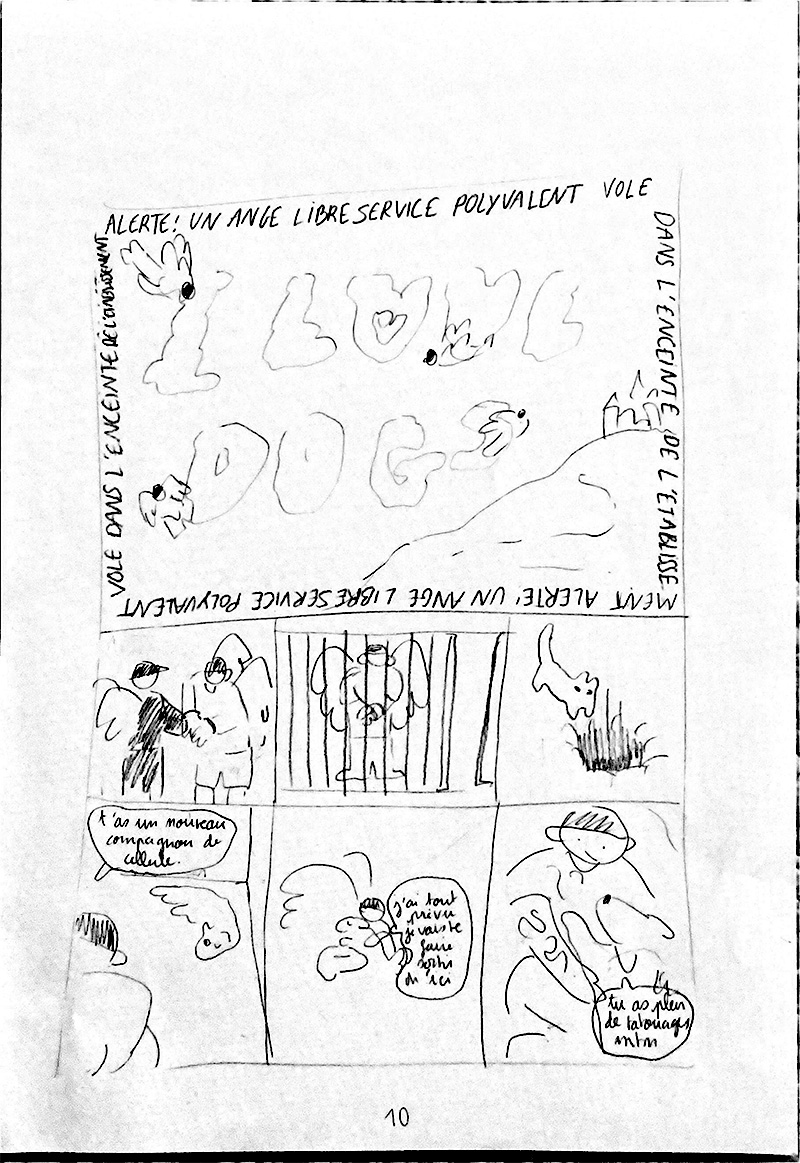 ALERTE! UN ANGE LIBRE SERVICE POLYVALENT VOLE
DANS L'ENCEINTE DE L'ÉTABLISSE
MENT ALERTE! UN ANGE LIBRE SERVICE POLYVALENT
VOLE DANS L'ENCEINTE DE L'ÉTABLISSEMENT
I LOVE
DOGS
t'as un nouveau
compagnon de
cellule.
j'ai tout
prévu
je vais te
faire
sortir
d'ici
tu as plein
de tatouages
10